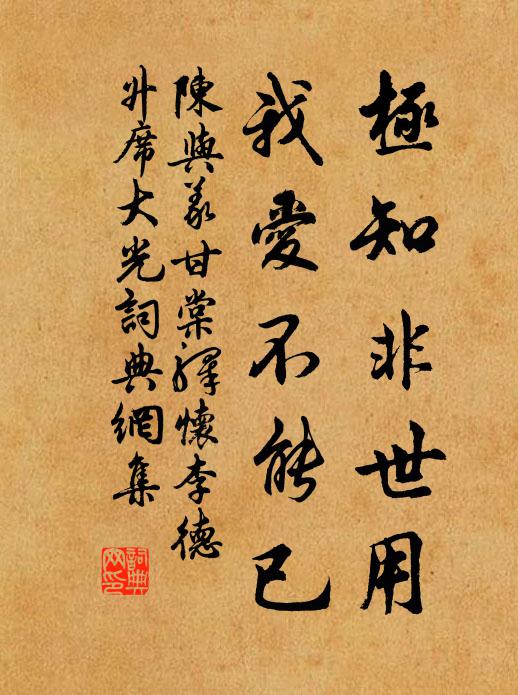 極知非世用
我愛不能已
陳與義甘棠驛懷李德
升席大光詞典網集
詞典网印